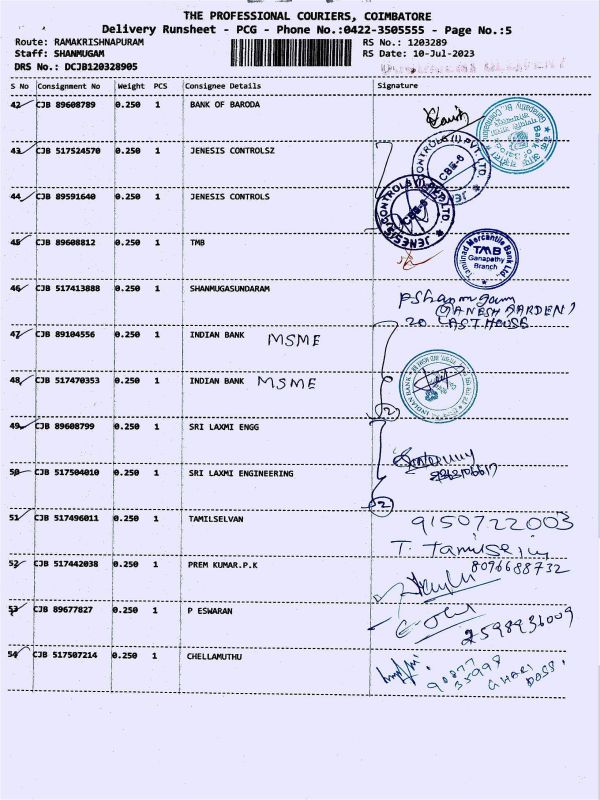 THE PROFESSIONAL COURIERS, COIMBATORE
Delivery Runsheet - PCG - Phone No.:0422-3505555 - Page No.:5
Route: RAMAKRISHNAPURAM RS No.: 1203289
Staff: SHANMUGAM RS Date: 10-Jul-2023
DRS No.: DCJB120328905
S No Consignment No Weight PCS Consignee Details Signature
42 CJB 89608789 0.250 1 BANK OF BARODA
43 CJB 517524570 0.250 1 JENESIS CONTROLSZ
44 CJB 89591640 0.250 1 JENESIS CONTROLS
JENESIS CONTROLS (I) PVT. LTD.
CBE-6
45 CJB 89608812 0.250 1 TMB
Tamilnad Mercantile Bank Ltd.
TMB
Ganapathy
Branch
46 CJB 517413888 0.250 1 SHANMUGASUNDARAM
PShanmugam
(GANESH GARDEN)
20 LAST HOUSE
47 CJB 89104556 0.250 1 INDIAN BANK MSME
48 CJB 517470353 0.250 1 INDIAN BANK MSME
INDIAN BANK
2
49 CJB 89608799 0.250 1 SRI LAXMI ENGG
50 CJB 517504010 0.250 1 SRI LAXMI ENGINEERING
2
51 CJB 517496011 0.250 1 TAMILSELVAN
9150722003
T. Tamilselvi
52 CJB 517442038 0.250 1 PREM KUMAR.P.K
8096688732
53 CJB 89677827 0.250 1 P ESWARAN
2598936009
54 CJB 517507214 0.250 1 CHELLAMUTHU
90877
35998